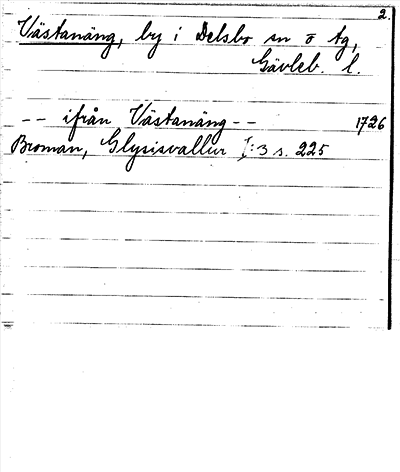 2.
Västanäng, by i Delsbo sn o tg,
Gävleb. l.
-- ifrån Västanäng -- 1726
Broman, Glysisvallur I:3 s. 225